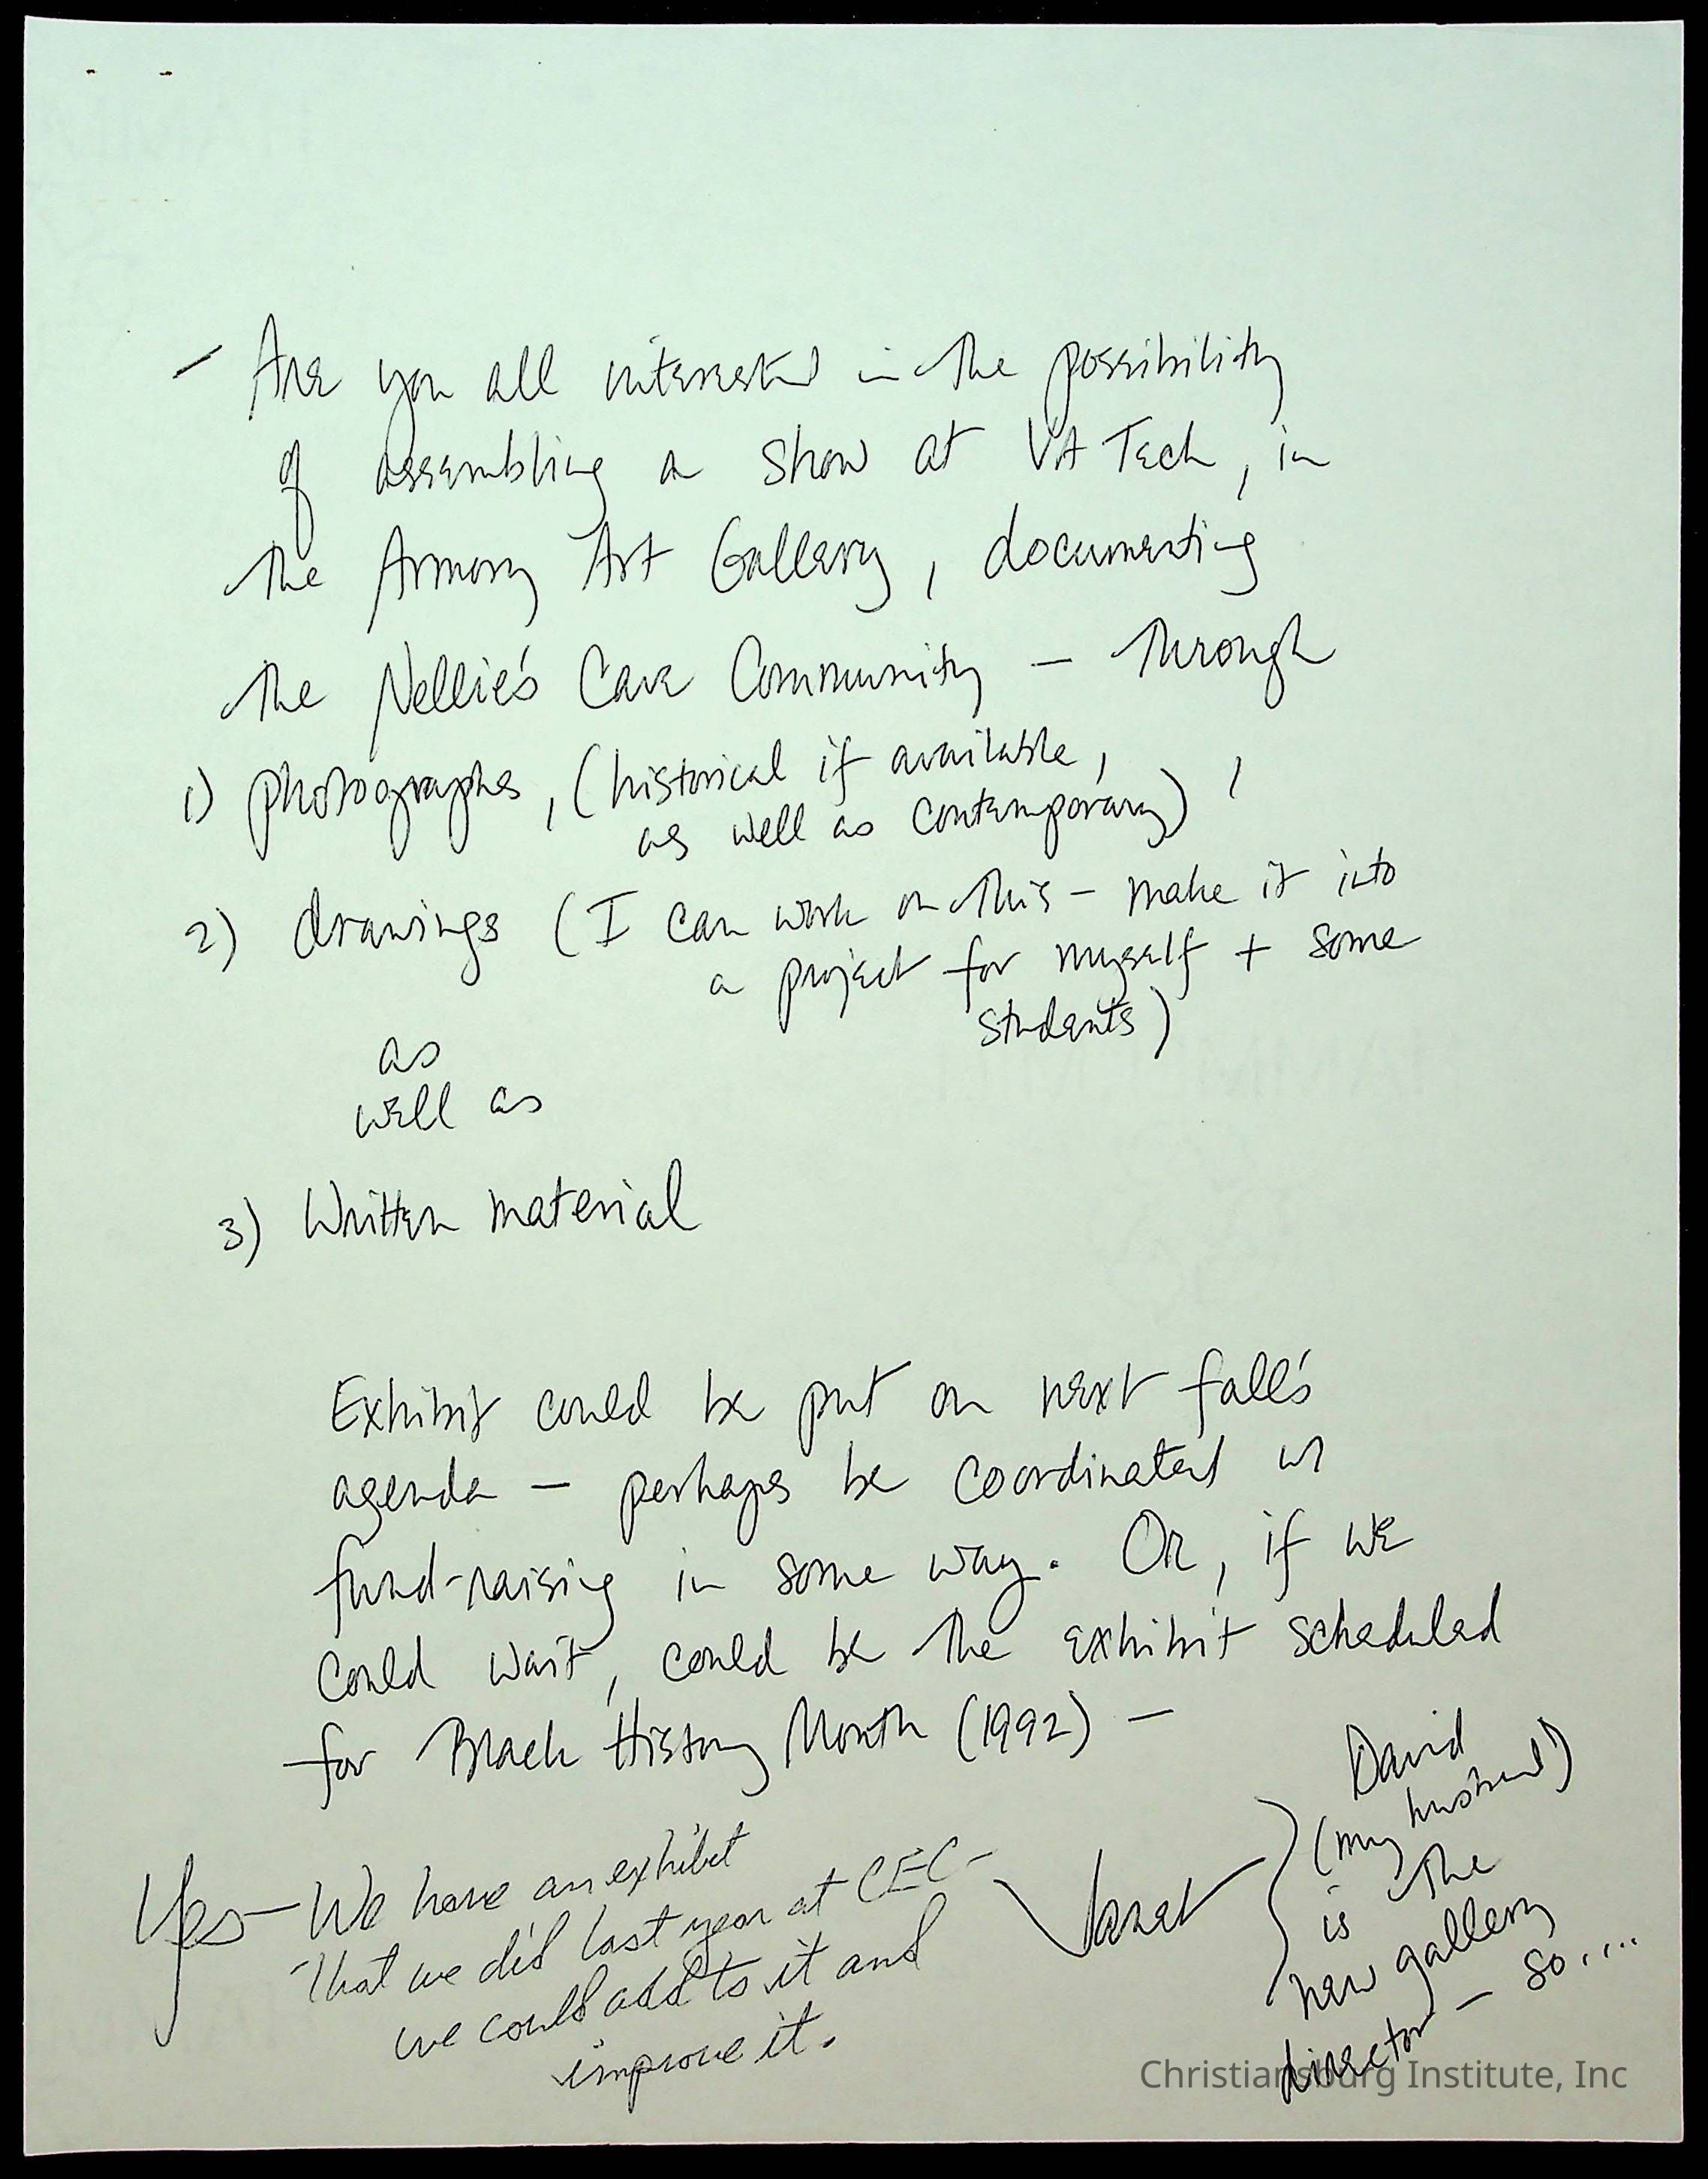 - Are you all interested in the possibility
of assembling a show at VA Tech, in
the Armory Art Gallery, documenting
the Nellie's Cave Community - through
1) photographs, (historical if available,
as well as contemporary),
2) drawings (I can work on this - make it into
a project for myself + some
students)
as
well as
3) Written material
Exhibit could be put on next fall's
agenda - perhaps be coordinated w/
fund-raising in some way. Or, if we
could wait, could be the exhibit scheduled
for Black History Month (1992) -
Janet
David
(my husband)
is the
new gallery
director - so....
Yes - We have an exhibit
that we did last year at CEC -
we could add to it and
improve it.
Christiansburg Institute, Inc